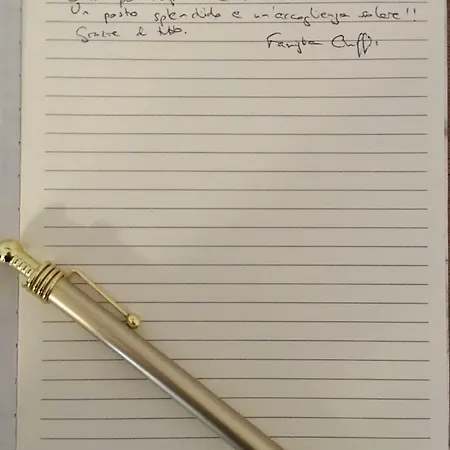 Un posto splendido e un'accoglienza solare!!
Grazie di tutto.
Famiglia